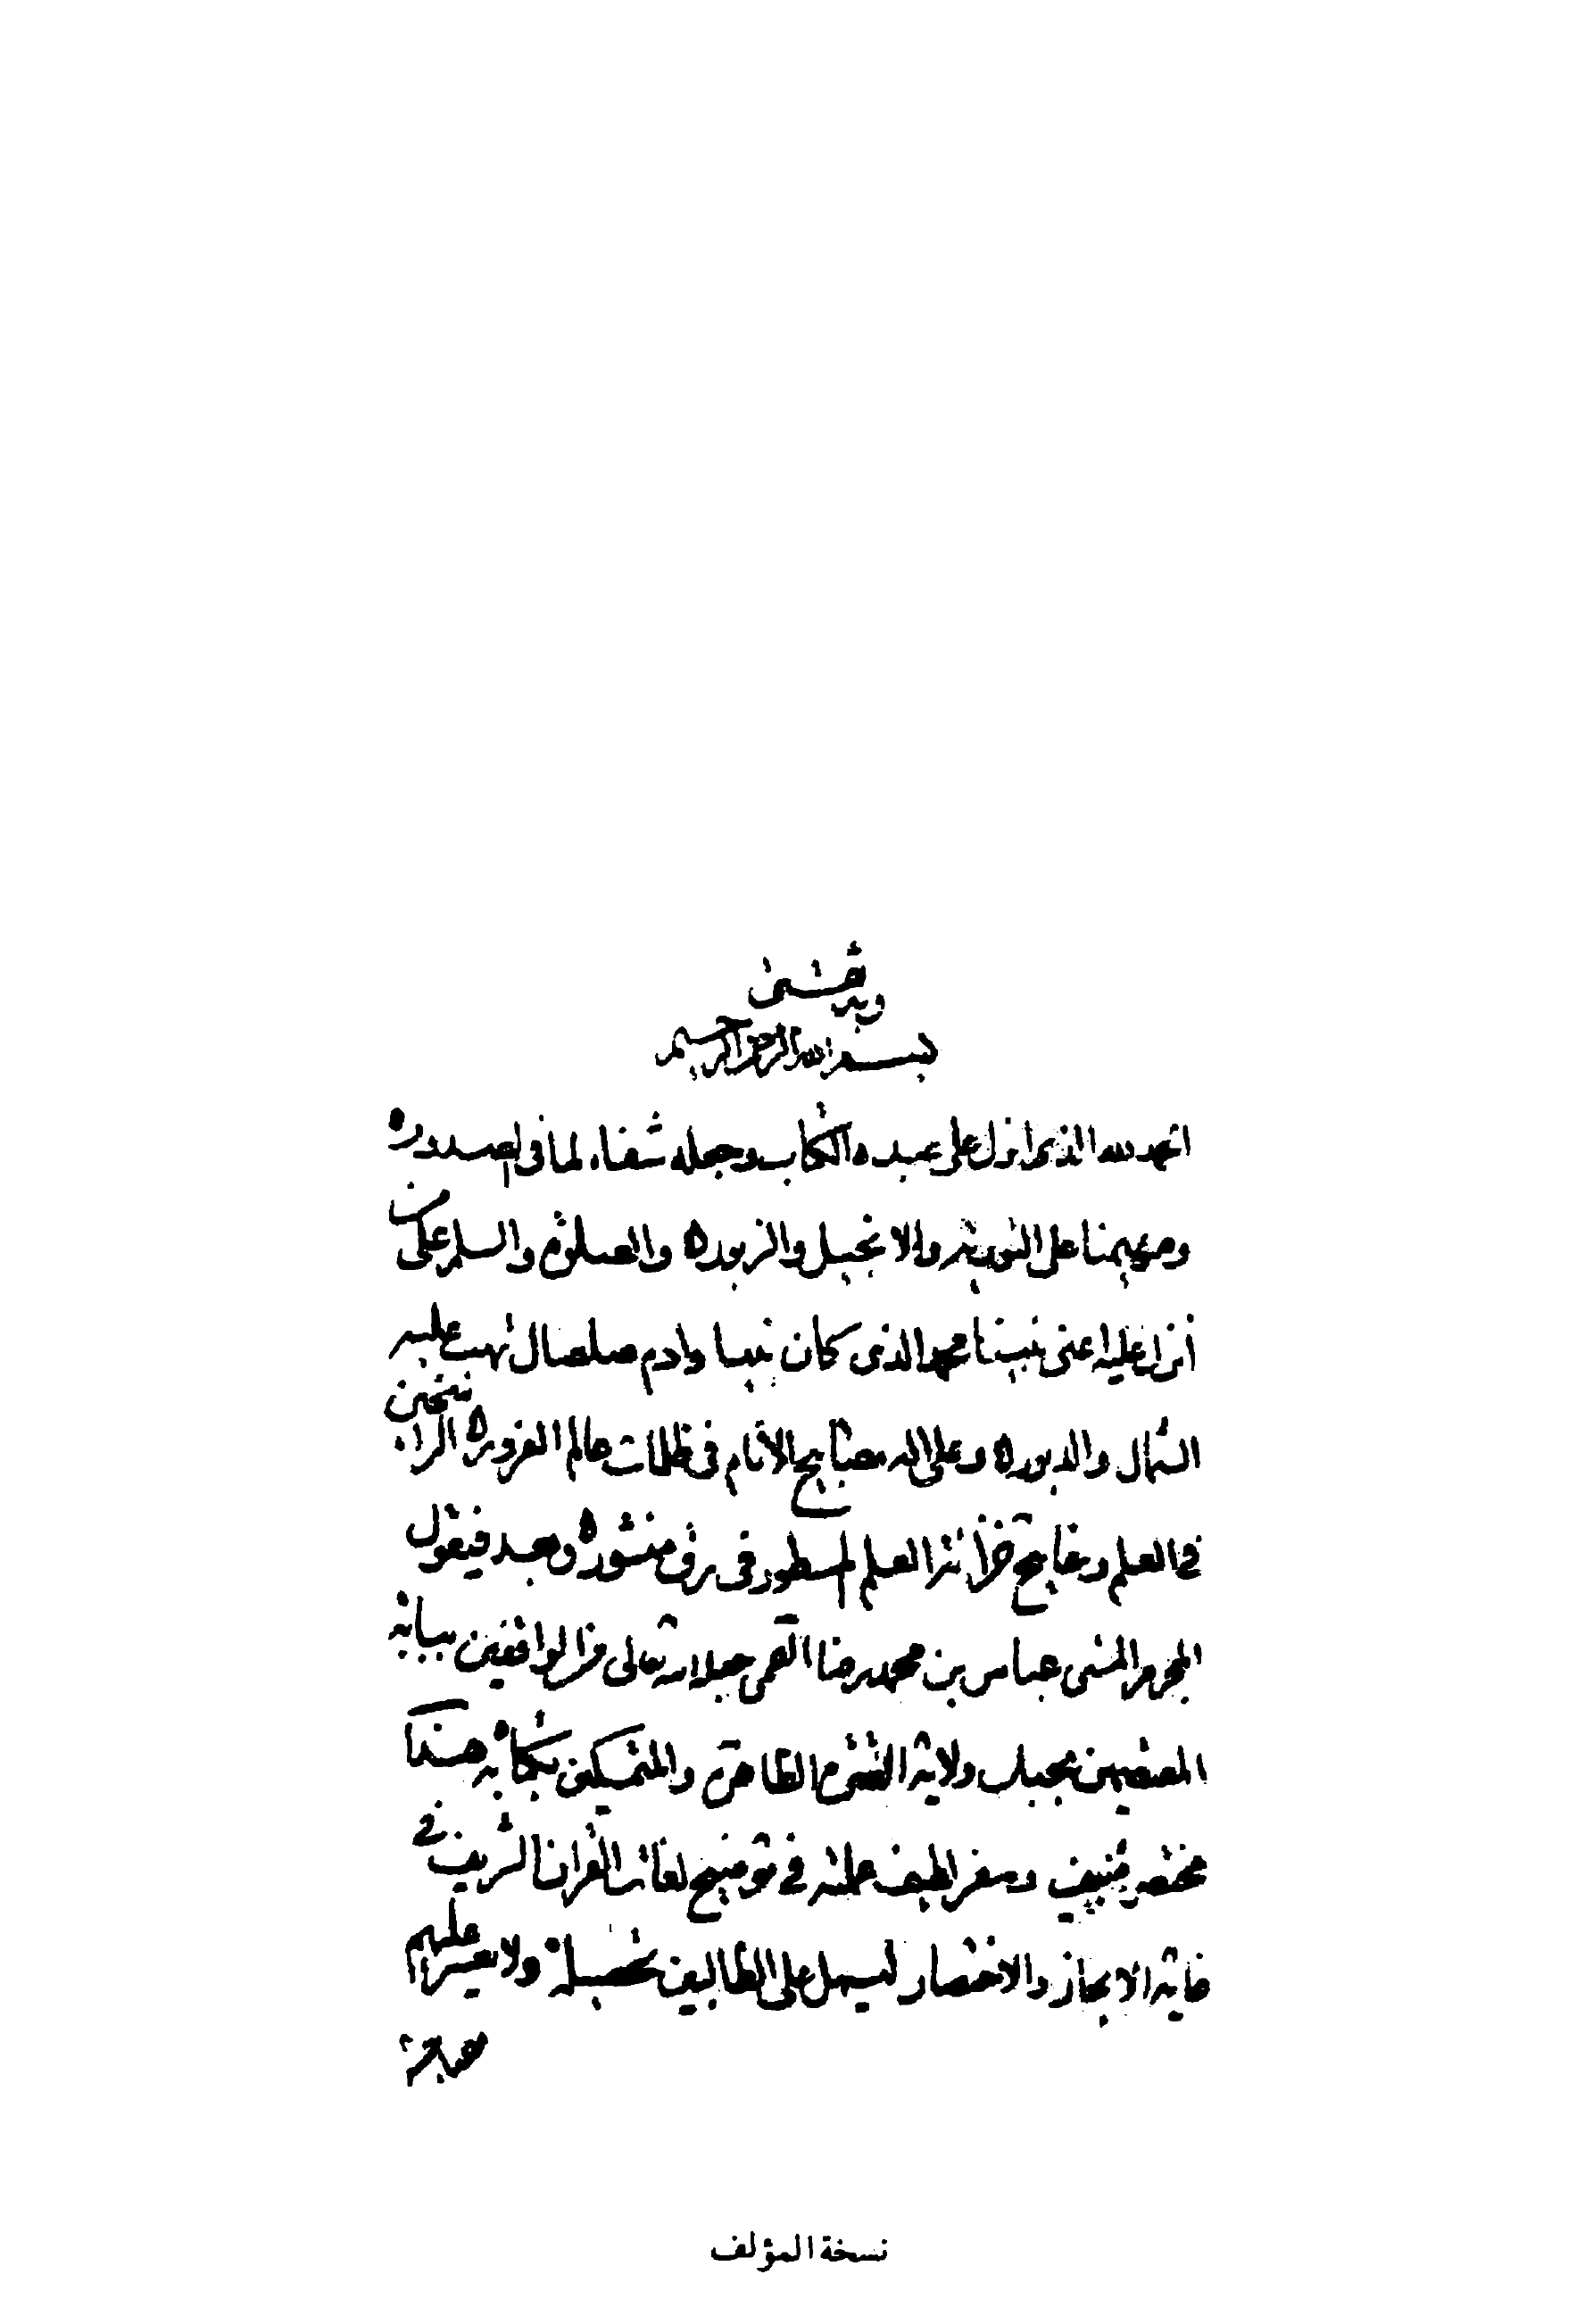 وبه ثقتي
بسم الله الرحمن الرحيم
الحمد لله الذي انزل على عبده الكتاب وجعله شفاء لما في الصدور ه
ومهيمنا على التورية والانجيل والزبور ه والصلوة والسلم على من
أنزل عليه اعنى نبينا محمد الذي كان نبيا وادم صلصال تهب عليه
الشمال والدبور ه وعلى اله مصابيح الانام في ظلمات عالم الغرور ه الراسخين
في العلم ومفاتيح خزائن العلم المسطور في رق منشور ه وبعد فيقول
المجرم المسئ عباس بن محمد رضا القمى جعله الله تعالى من الواقفين ببابه
المعتصمين بحبل ولاية العترة الطاهرة والمتمسكين بكتابه هذا
مختصر منيف وسفر لطيف عملته في توضيح لغات القران الشريف في
غاية الايجاز والاختصار ليسهل على الطالبين تحصيله ولا يعسر عليهم
نسخة المؤلف